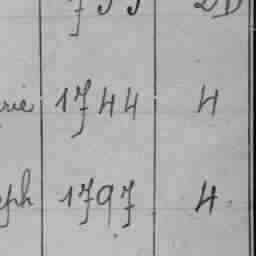 rie 1744 4
eph 1797 4.